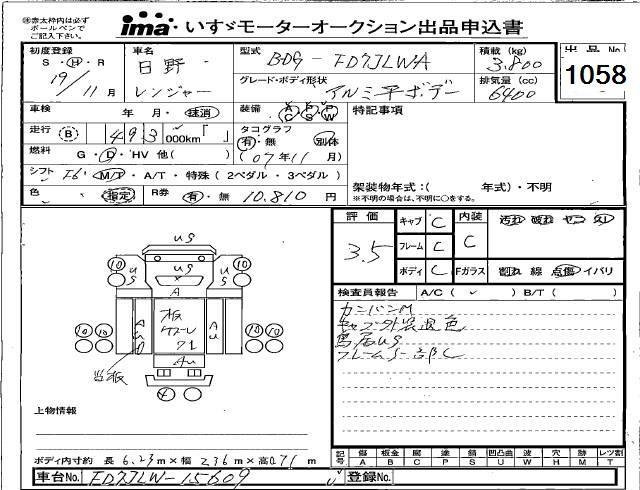 ※赤太枠内は必ず
ボールペンで
ご記入下さい。
ima いすゞモーターオークション出品申込書
初度登録 車名 型式 BDG-FD7JLWA 積載 (kg) 出品No
S・H・R 日野 3.800 1058
19/11月 レンジャー グレード・ボディ形状 アルミ平ボデー 排気量 (cc) 6400
車検 年 月・抹消 装備 A/C P/S P/W 特記事項
走行 B 493 000km「 」 タコグラフ 有・無 別体
燃料 G・D・HV 他( ) (07年11月)
シフト F6 M/T・A/T・特殊 (2ペダル・3ペダル)
架装物年式:( 年式)・不明
色 指定 R券 有・無 10.810 円 ※不明の場合は、不明に○をする。
評価 3.5 キャブ C 内装 C 汚れ 破れ ヤニ スレ
フレーム C
ボディ C Fガラス 割れ 線 点傷 イバリ
検査員報告 A/C ( ✓ ) B/T ( )
カンバンM
キャブ外装退色
鳥居US
フレームS一部C
US
10 10
US US
A
10 10 10 10
板
AUS AU
AU
当板
4
上物情報
ボディ内寸約 長 6.23m×幅 2.36m×高 0.71m
記号 傷 A 板金 B 腐 C 塗 P 錆 S 凹凸曲 U 波 W 穴 H 跡 M レツ割 T
車台No. FD7JLW-15609 登録No.